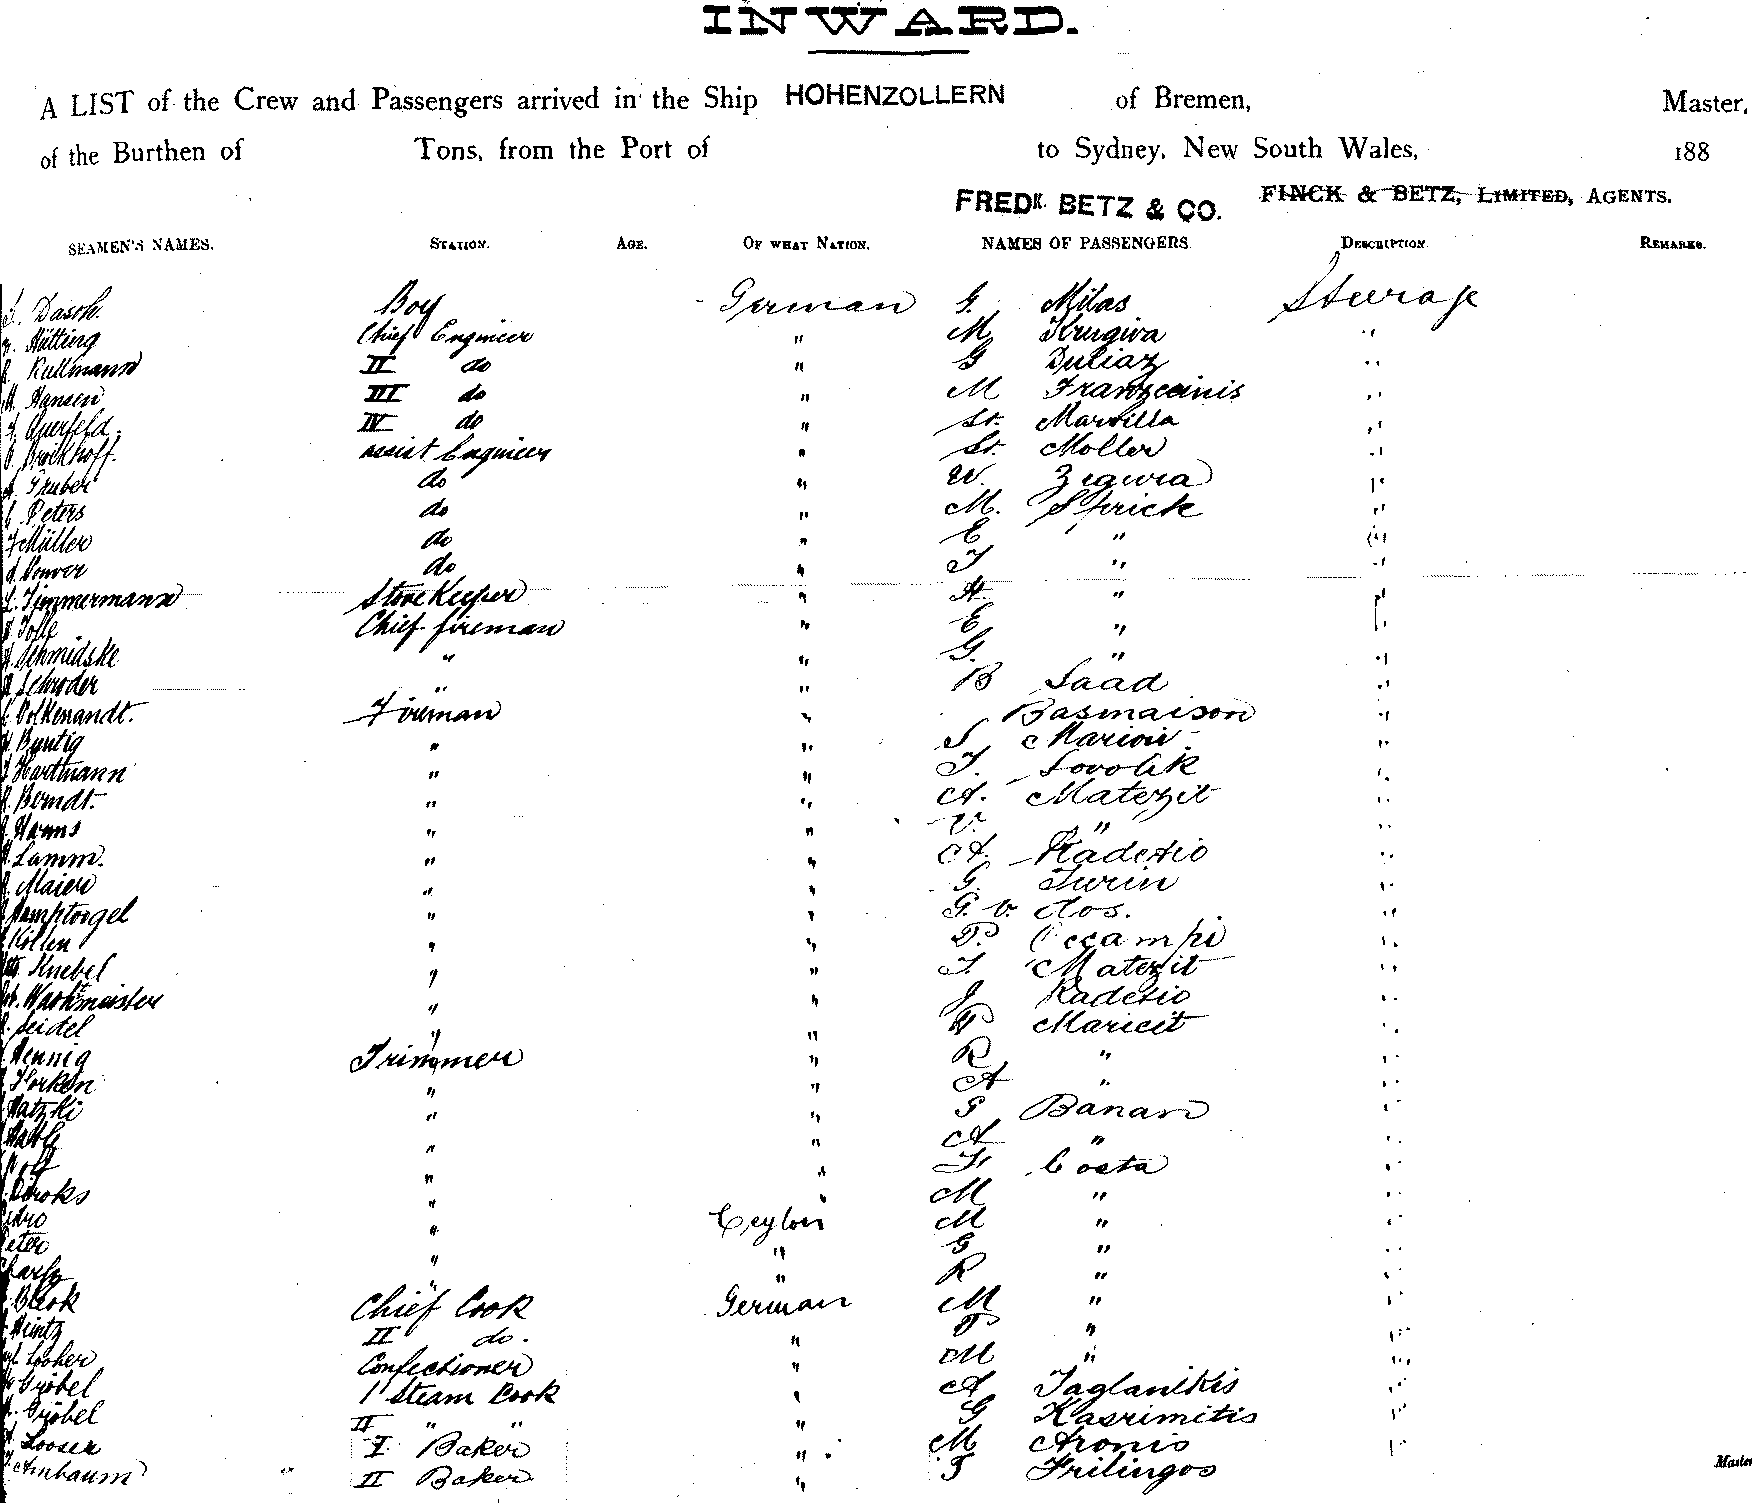 INWARD.
A LIST of the Crew and Passengers arrived in the Ship HOHENZOLLERN of Bremen, Master,
of the Burthen of Tons, from the Port of to Sydney, New South Wales, 188
FREDK BETZ & CO. FINCK & BETZ, LIMITED, AGENTS.
SEAMEN'S NAMES. STATION. AGE. OF WHAT NATION. NAMES OF PASSENGERS DESCRIPTION. REMARKS.
Dasch. Boy German G. Milas Steerage
Hütting Chief Engineer " M Krugiva "
Kullmann II do " G Duliaz "
Hansen III do " M Franzceinis "
Querfeld. IV do " St. Marsilla "
Brockhoff. assist Engineer " St. Moller "
Gruber do " W. Zegura "
Peters do " M. Sprick "
Müller do " E " "
do " J " "
Timmermann Storekeeper " A " "
Chief fireman " E " "
Schmidske " " G. " "
Schroder " " B Saad "
Volkenandt. Fireman " Basmaison "
Buntig " " S Marion "
Hartmann " " J. Lovolik "
Berndt. " " A. Matezit "
Hanns " " V. " "
Lamm. " " A. Radetio "
Maier " " G. Turin "
" " G. v. dos. "
Köllen " " P. Occampi "
Knebel " " J Matezit "
Wachtmeister " " J Radetio "
Seidel " " Maricit "
Hennig Trimmer " R " "
Horken " " A " "
Matzki " " G Banan "
" " A " "
Wolf " " F Costa "
Dierks " " M " "
Pedro " Ceylon M " "
Peter " " G " "
Charly " " R " "
Block Chief Cook German M " "
Heintz II do. " " "
Locher Confectioner " M " "
Gröbel 1 Steam Cook " A Taglanikis "
Gröbel II " " " G Kasrimitis "
Looser I. Baker " M Aronis "
Ambaum II Baker " F Frilingos
Master